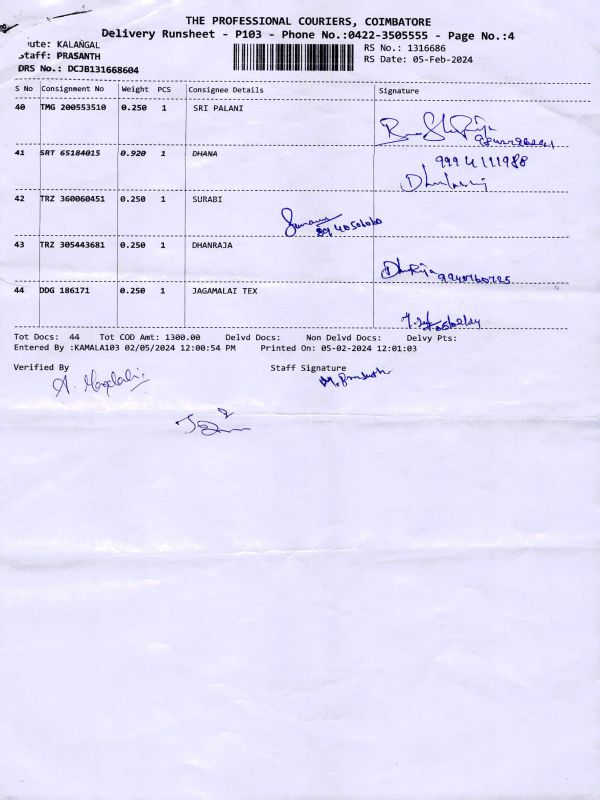 THE PROFESSIONAL COURIERS, COIMBATORE
Delivery Runsheet - P103 - Phone No.:0422-3505555 - Page No.:4
ute: KALANGAL RS No.: 1316686
taff: PRASANTH RS Date: 05-Feb-2024
DRS No.: DCJB131668604
S No Consignment No Weight PCS Consignee Details Signature
40 TMG 200553510 0.250 1 SRI PALANI
41 SRT 65184015 0.920 1 DHANA 9994111988
42 TRZ 360060451 0.250 1 SURABI
43 TRZ 305443681 0.250 1 DHANRAJA
44 DDG 186171 0.250 1 JAGAMALAI TEX
Tot Docs: 44 Tot COD Amt: 1300.00 Delvd Docs: Non Delvd Docs: Delvy Pts:
Entered By :KAMALA103 02/05/2024 12:00:54 PM Printed On: 05-02-2024 12:01:03
Verified By Staff Signature